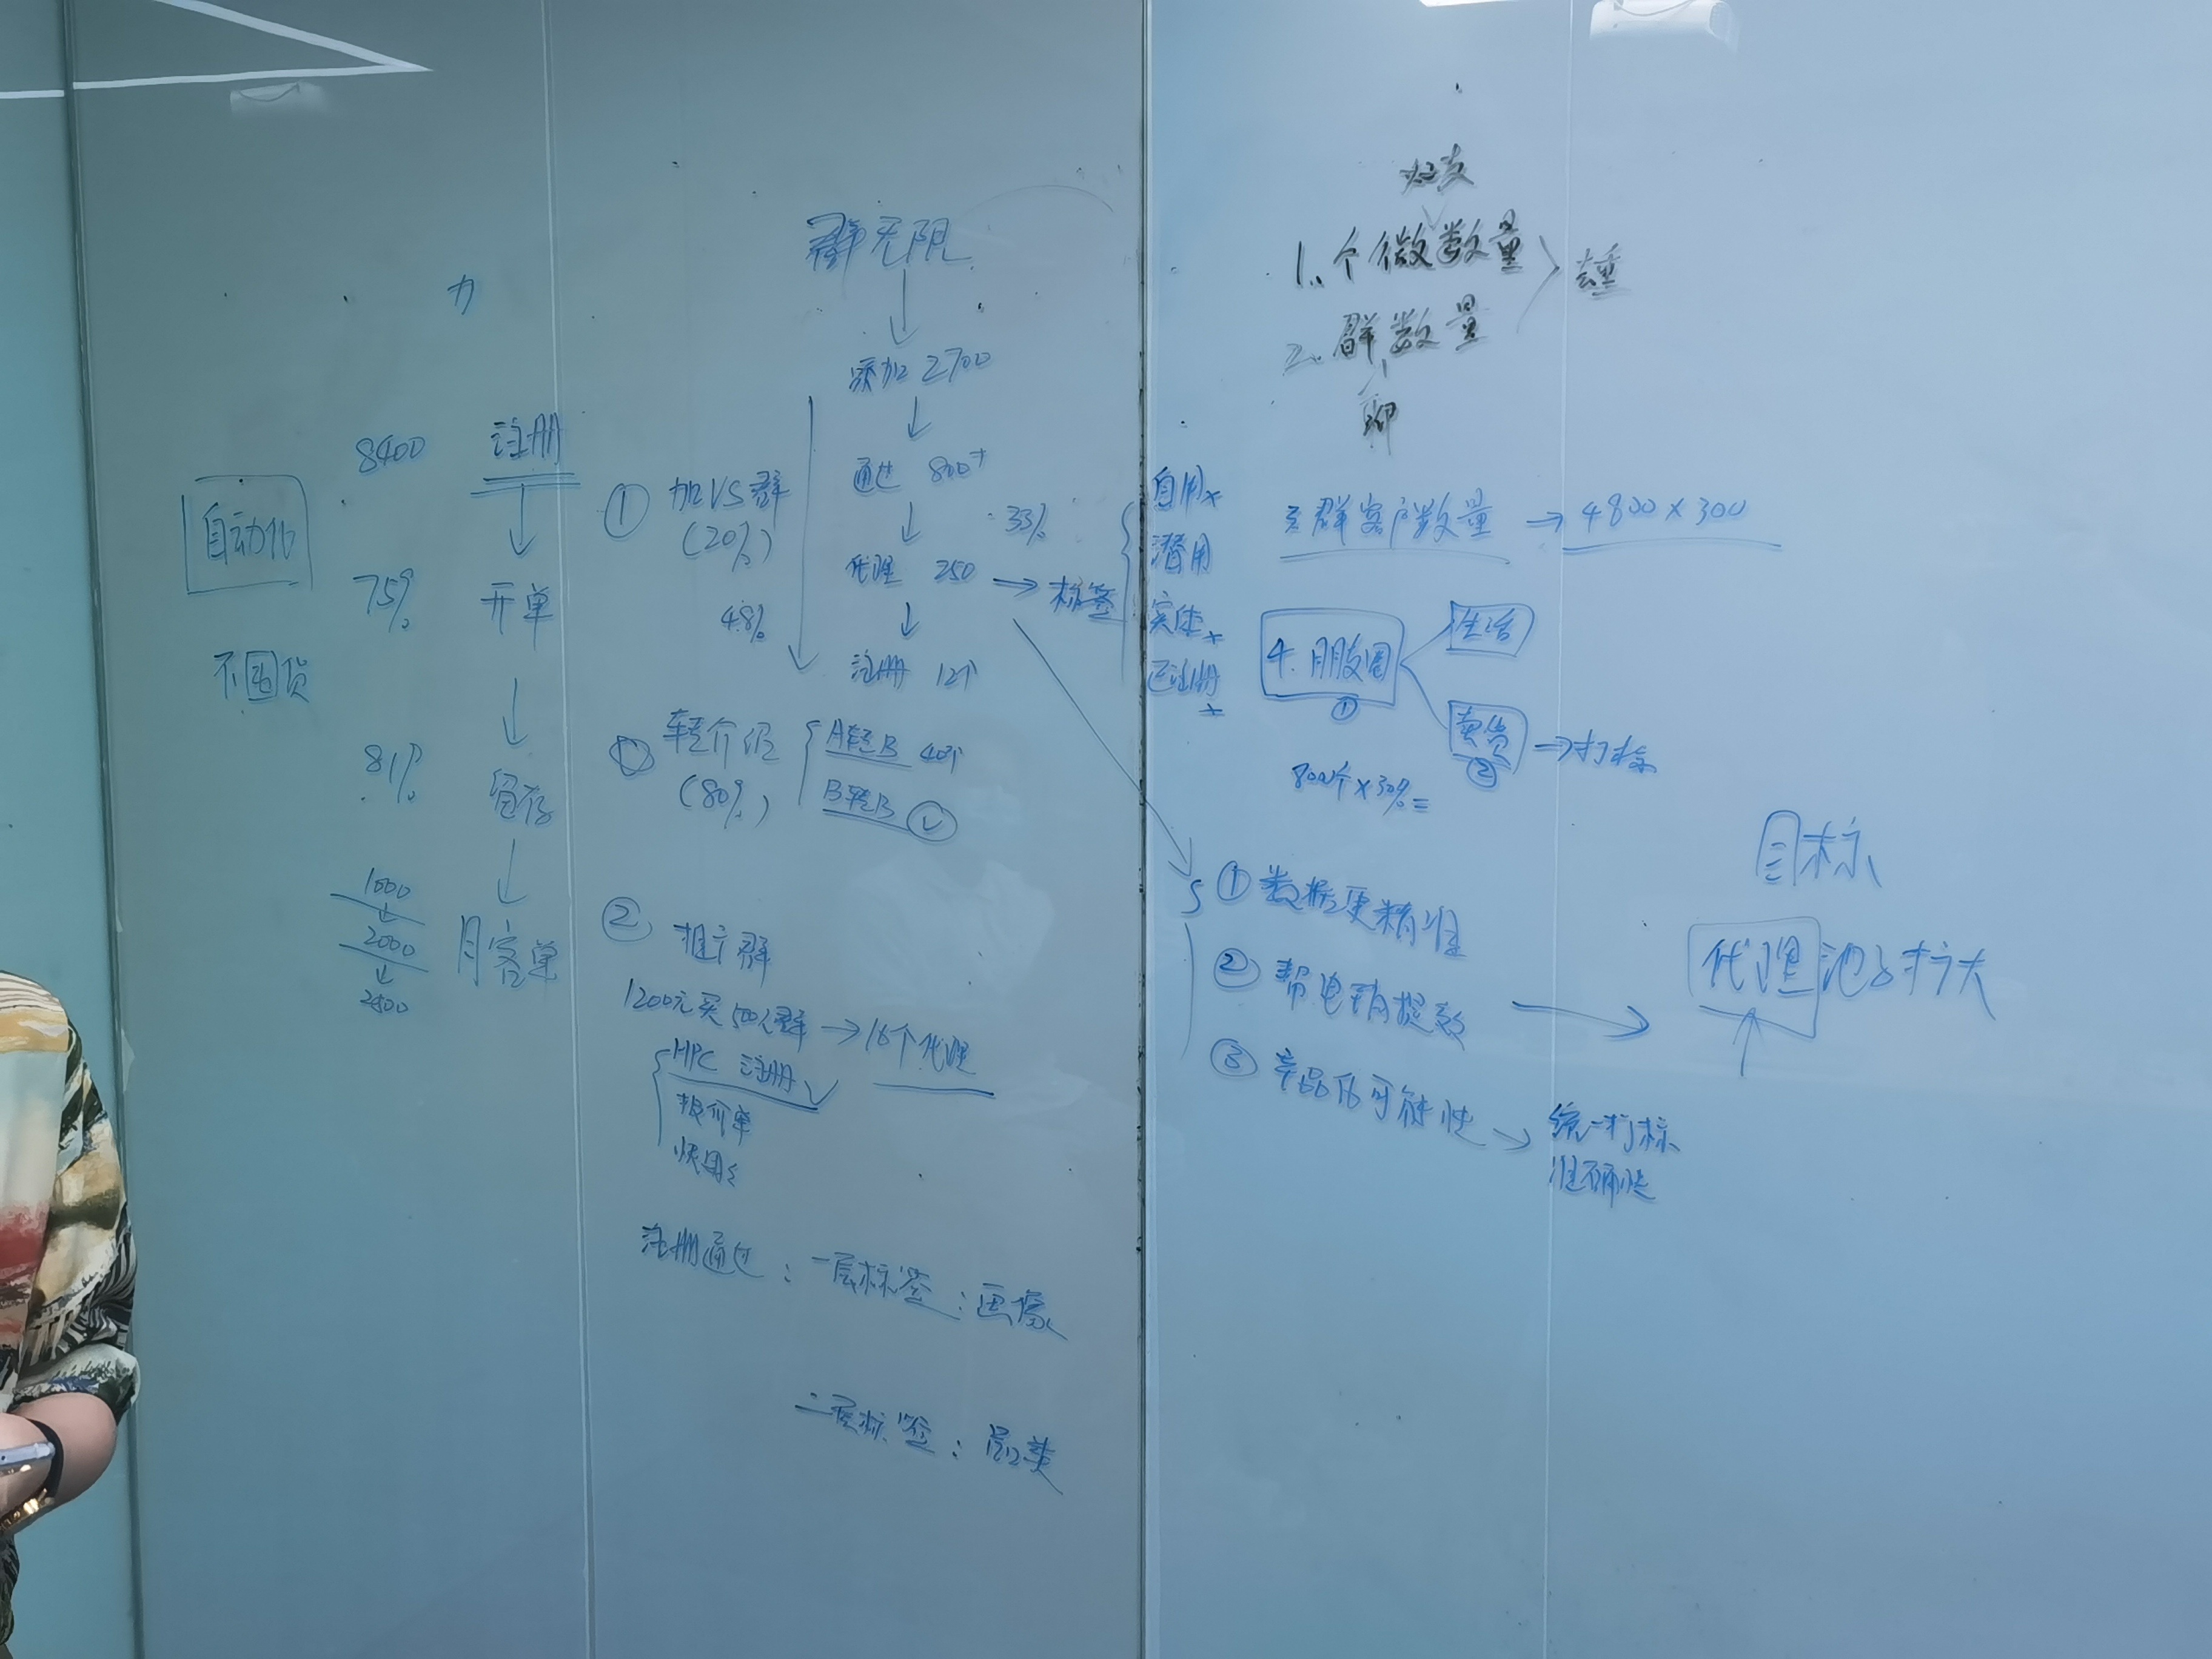 力
8400 注册
自动化
75% 开单
不囤货
81% 留存
1000
2000
2500
月客单
群无限
添加 2700
通过 800+
33%
代理 250 → 标签
注册 12个
① 加VS群
(20%)
4.8%
转介绍
(80%)
A转B 40个
B转B
② 推广群
1200元买500人群 → 16个代理
HPC 注册
报价单
注册通过：一层标签：画像
二层标签：
自用
潜用
实体
已注册
好友
1. 个微数量
2. 群数量
去重
聊
群客户数量 → 4800×300
4. 朋友圈
①
生活
卖货
②
→ 打标
800个×30%=
① 数据更精准
② 帮电销提效
③ 产品化可能性 → 统一打标
准确性
目标
代理池子扩大